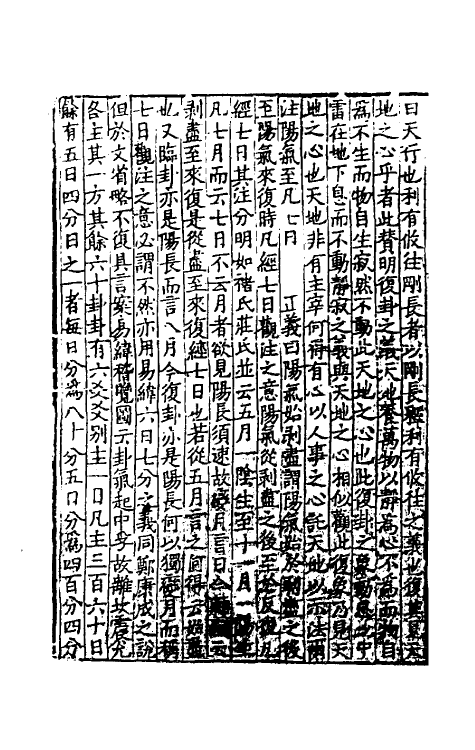 曰天行也利有攸往剛長者以剛長釋利有攸往之義也復其見天
地之心乎者此贊明復卦之義天地養萬物以靜為心不為而物自
為不生而物自生寂然不動此天地之心也此復卦之象動息地中
雷在地下息而不動靜寂之義與天地之心相似觀此復象乃見天
地之心也天地非有主宰何得有心以人事之心託天地以示法爾
注陽氣至凡七日　正義曰陽氣始剥盡謂陽氣始於剥盡之後
至陽氣來復時凡經七日觀注之意陽氣從剥盡之後至於反復凡
經七日其注分明如褚氏莊氏並云五月一陰生至十一月一陽生
凡七月而云七日不云月者欲見陽長須速故變月言日今
剥盡至來復是從盡至來復經七日也若從五月言之何得云始盡
也又臨卦亦是陽長而言八月今復卦亦是陽長何以獨變月而稱
七日觀注之意必謂不然亦用易緯六日七分之義同鄭康成之說
但於文省略不復具言案易緯稽覽圖云卦氣起中孚故離坎震兌
各主其一方其餘六十卦卦有六爻爻別主一日凡主三百六十日
餘有五日四分日之一者每日分為八十分五日分為四百分四分